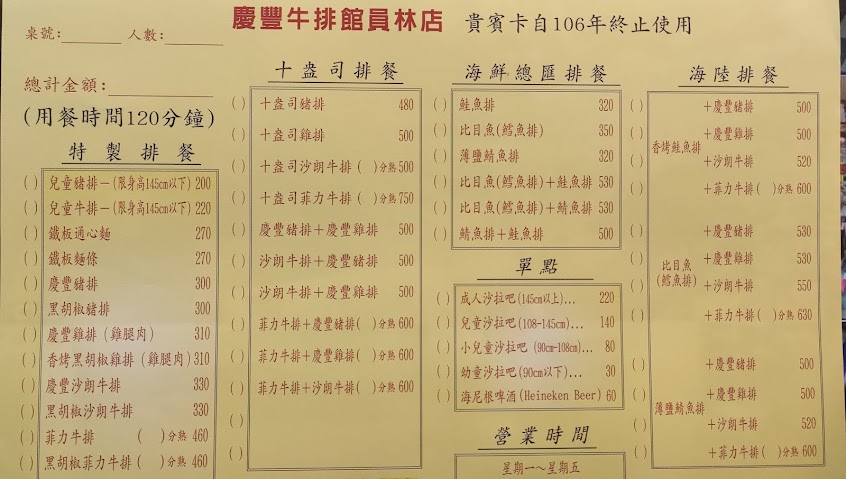 慶豐牛排館員林店 貴賓卡自106年終止使用
桌號: 人數:
總計金額:
(用餐時間120分鐘)
特製排餐
( ) 兒童豬排－(限身高145cm以下) 200
( ) 兒童牛排－(限身高145cm以下) 220
( ) 鐵板通心麵 270
( ) 鐵板麵條 270
( ) 慶豐豬排 300
( ) 黑胡椒豬排 300
( ) 慶豐雞排 (雞腿肉) 310
( ) 香烤黑胡椒雞排 (雞腿肉) 310
( ) 慶豐沙朗牛排 330
( ) 黑胡椒沙朗牛排 330
( ) 菲力牛排 ( )分熟 460
( ) 黑胡椒菲力牛排 ( )分熟 460
十盎司排餐
( ) 十盎司豬排 480
( ) 十盎司雞排 500
( ) 十盎司沙朗牛排 ( )分熟 500
( ) 十盎司菲力牛排 ( )分熟 750
( ) 慶豐豬排＋慶豐雞排 500
( ) 沙朗牛排＋慶豐豬排 500
( ) 沙朗牛排＋慶豐雞排 500
( ) 菲力牛排＋慶豐豬排( )分熟 600
( ) 菲力牛排＋慶豐雞排( )分熟 600
( ) 菲力牛排＋沙朗牛排( )分熟 600
( )
( )
海鮮總匯排餐
( ) 鮭魚排 320
( ) 比目魚(鱈魚排) 350
( ) 薄鹽鯖魚排 320
( ) 比目魚(鱈魚排)＋鮭魚排 530
( ) 比目魚(鱈魚排)＋鯖魚排 530
( ) 鯖魚排＋鮭魚排 500
單點
( ) 成人沙拉吧(145cm以上)... 220
( ) 兒童沙拉吧(108-145cm)... 140
( ) 小兒童沙拉吧 (90cm-108cm)... 80
( ) 幼童沙拉吧(90cm以下)... 30
( ) 海尼根啤酒(Heineken Beer) 60
營業時間
星期一～星期五
海陸排餐
香烤鮭魚排
( ) ＋慶豐豬排 500
( ) ＋慶豐雞排 500
( ) ＋沙朗牛排 520
( ) ＋菲力牛排( )分熟 600
比目魚
(鱈魚排)
( ) ＋慶豐豬排 530
( ) ＋慶豐雞排 530
( ) ＋沙朗牛排 550
( ) ＋菲力牛排( )分熟 630
薄鹽鯖魚排
( ) ＋慶豐豬排 500
( ) ＋慶豐雞排 500
( ) ＋沙朗牛排 520
( ) ＋菲力牛排( )分熟 600